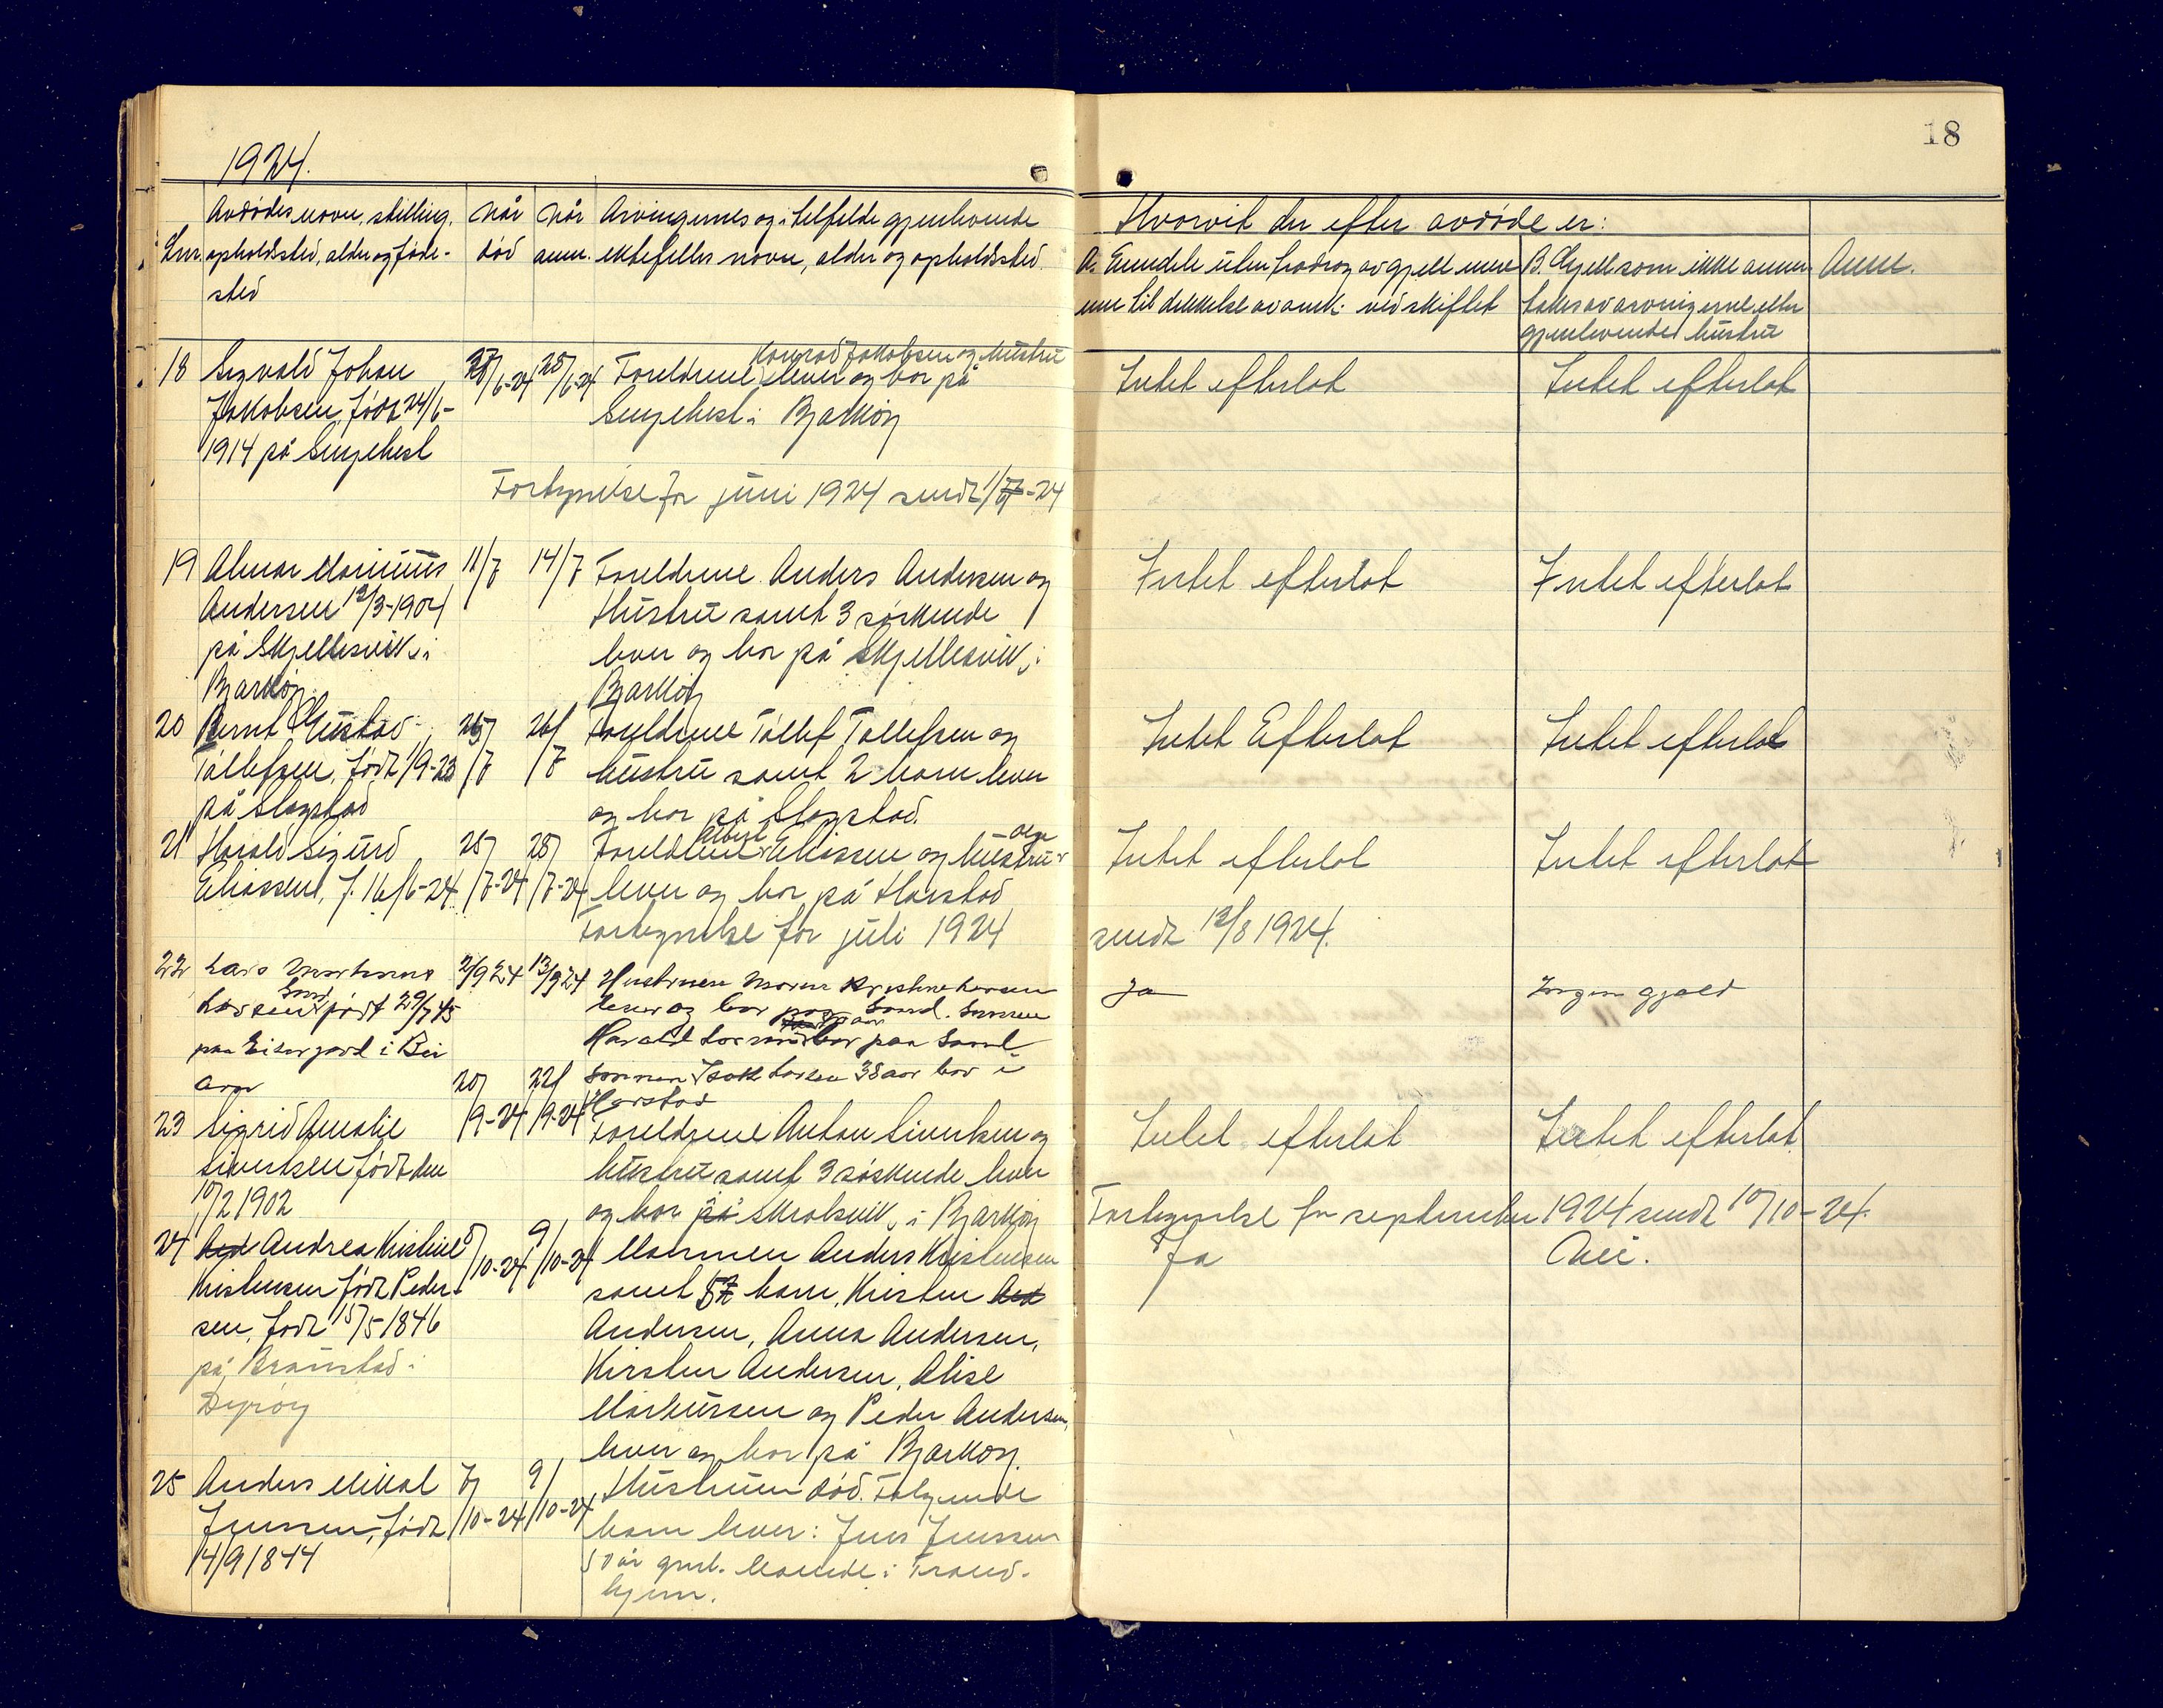 18
1924.
Lnr.
Avdødes navn, stilling,
opholdssted, alder og føde-
sted
Når
død
Når
anm.
Arvingernes og i tilfelde gjenlevende
ektefelles navn, alder og opholdssted.
Hvorvit der efter avdøde er:
A. Eiendele uten fradrag av gjell mere
enn til dekkelse av omk. ved skiftet
B. Gjell som ikke anmer
takes av arvingerne eller
gjenlevende hustru
Anm.
18
Sigvald Johan
Jakobsen, født 24/6-
1914 på Lemhest
/6-24
28/6-24
Konrad Jakobsen og hustru
Foreldrene lever og bor på
i Bjarkøy
Intet efterlat
Intet efterlat
Fortegnelse for juni 1924 sendt 1/7-24
19
Almar Marinius
Andersen 12/3-1904
på Skjellesvik, i
Bjarkøy
11/7
14/7
Foreldrene Anders Andersen og
Hustru samt 3 søskende
lever og bor på Skjellesvik, i
Bjarkøy
Intet efterlat
Intet efterlat
20
Bernt Gustav
Tollefsen, født 1/9-23
på Slogstad
25/7
26/7
Foreldrene Tollef Tollefsen og
hustru samt 2 barn lever
og bor på Slogstad.
Intet Efterlat
Intet efterlat
21
Harald Sigurd
Eliassen, f. 16/6-24
25/7-24
28/7-24
Foreldrene Eliassen og hustru Olga
lever og bor på Harstad
Intet efterlat
Intet efterlat
Fortegnelse for juli 1924
sendt 12/8 1924.
22
Lars
Larsen Sand født 29/7 45
paa Eitergjord i Bei
arn
2/9 24
13/9 24
Hustruen Maren Kristine Larsen
lever og bor paa Sand. Sønnen
Harald Larsen bor paa Sand
Sønnen Isak Larsen 38 aar bor i
Harstad
Ja
Ingen gjæld
23
Sigrid Amalie
Sivertsen født den
10/2 1902
20/9-24
22/9-24
Foreldrene Anton Sivertsen og
hustru samt 3 søskende lever
og bor på Skrolsvik, i Bjarkøy
Intet efterlat
Intet efterlat
Fortegnelse for september 1924 sendt 10/10-24.
24
Andrea Kristine
Kristensen født Peder-
sen, født 15/5 1846
på Branstad i
Dyrøy
8/10-24
9/10-24
Mannen Anders Kristensen
samt 5 barn, Kristen
Andersen, Anna Andersen,
Kirsten Andersen, Elise
Markussen og Peder Andersen,
lever og bor på Bjarkøy.
Ja
Nei.
25
Anders Mikal
Jenssen, født
14/9 1844
7/10-24
9/10-24
Hustruen død. Følgende
barn lever: Jens Jenssen
50 år gml. boende i Trond-
hjem.